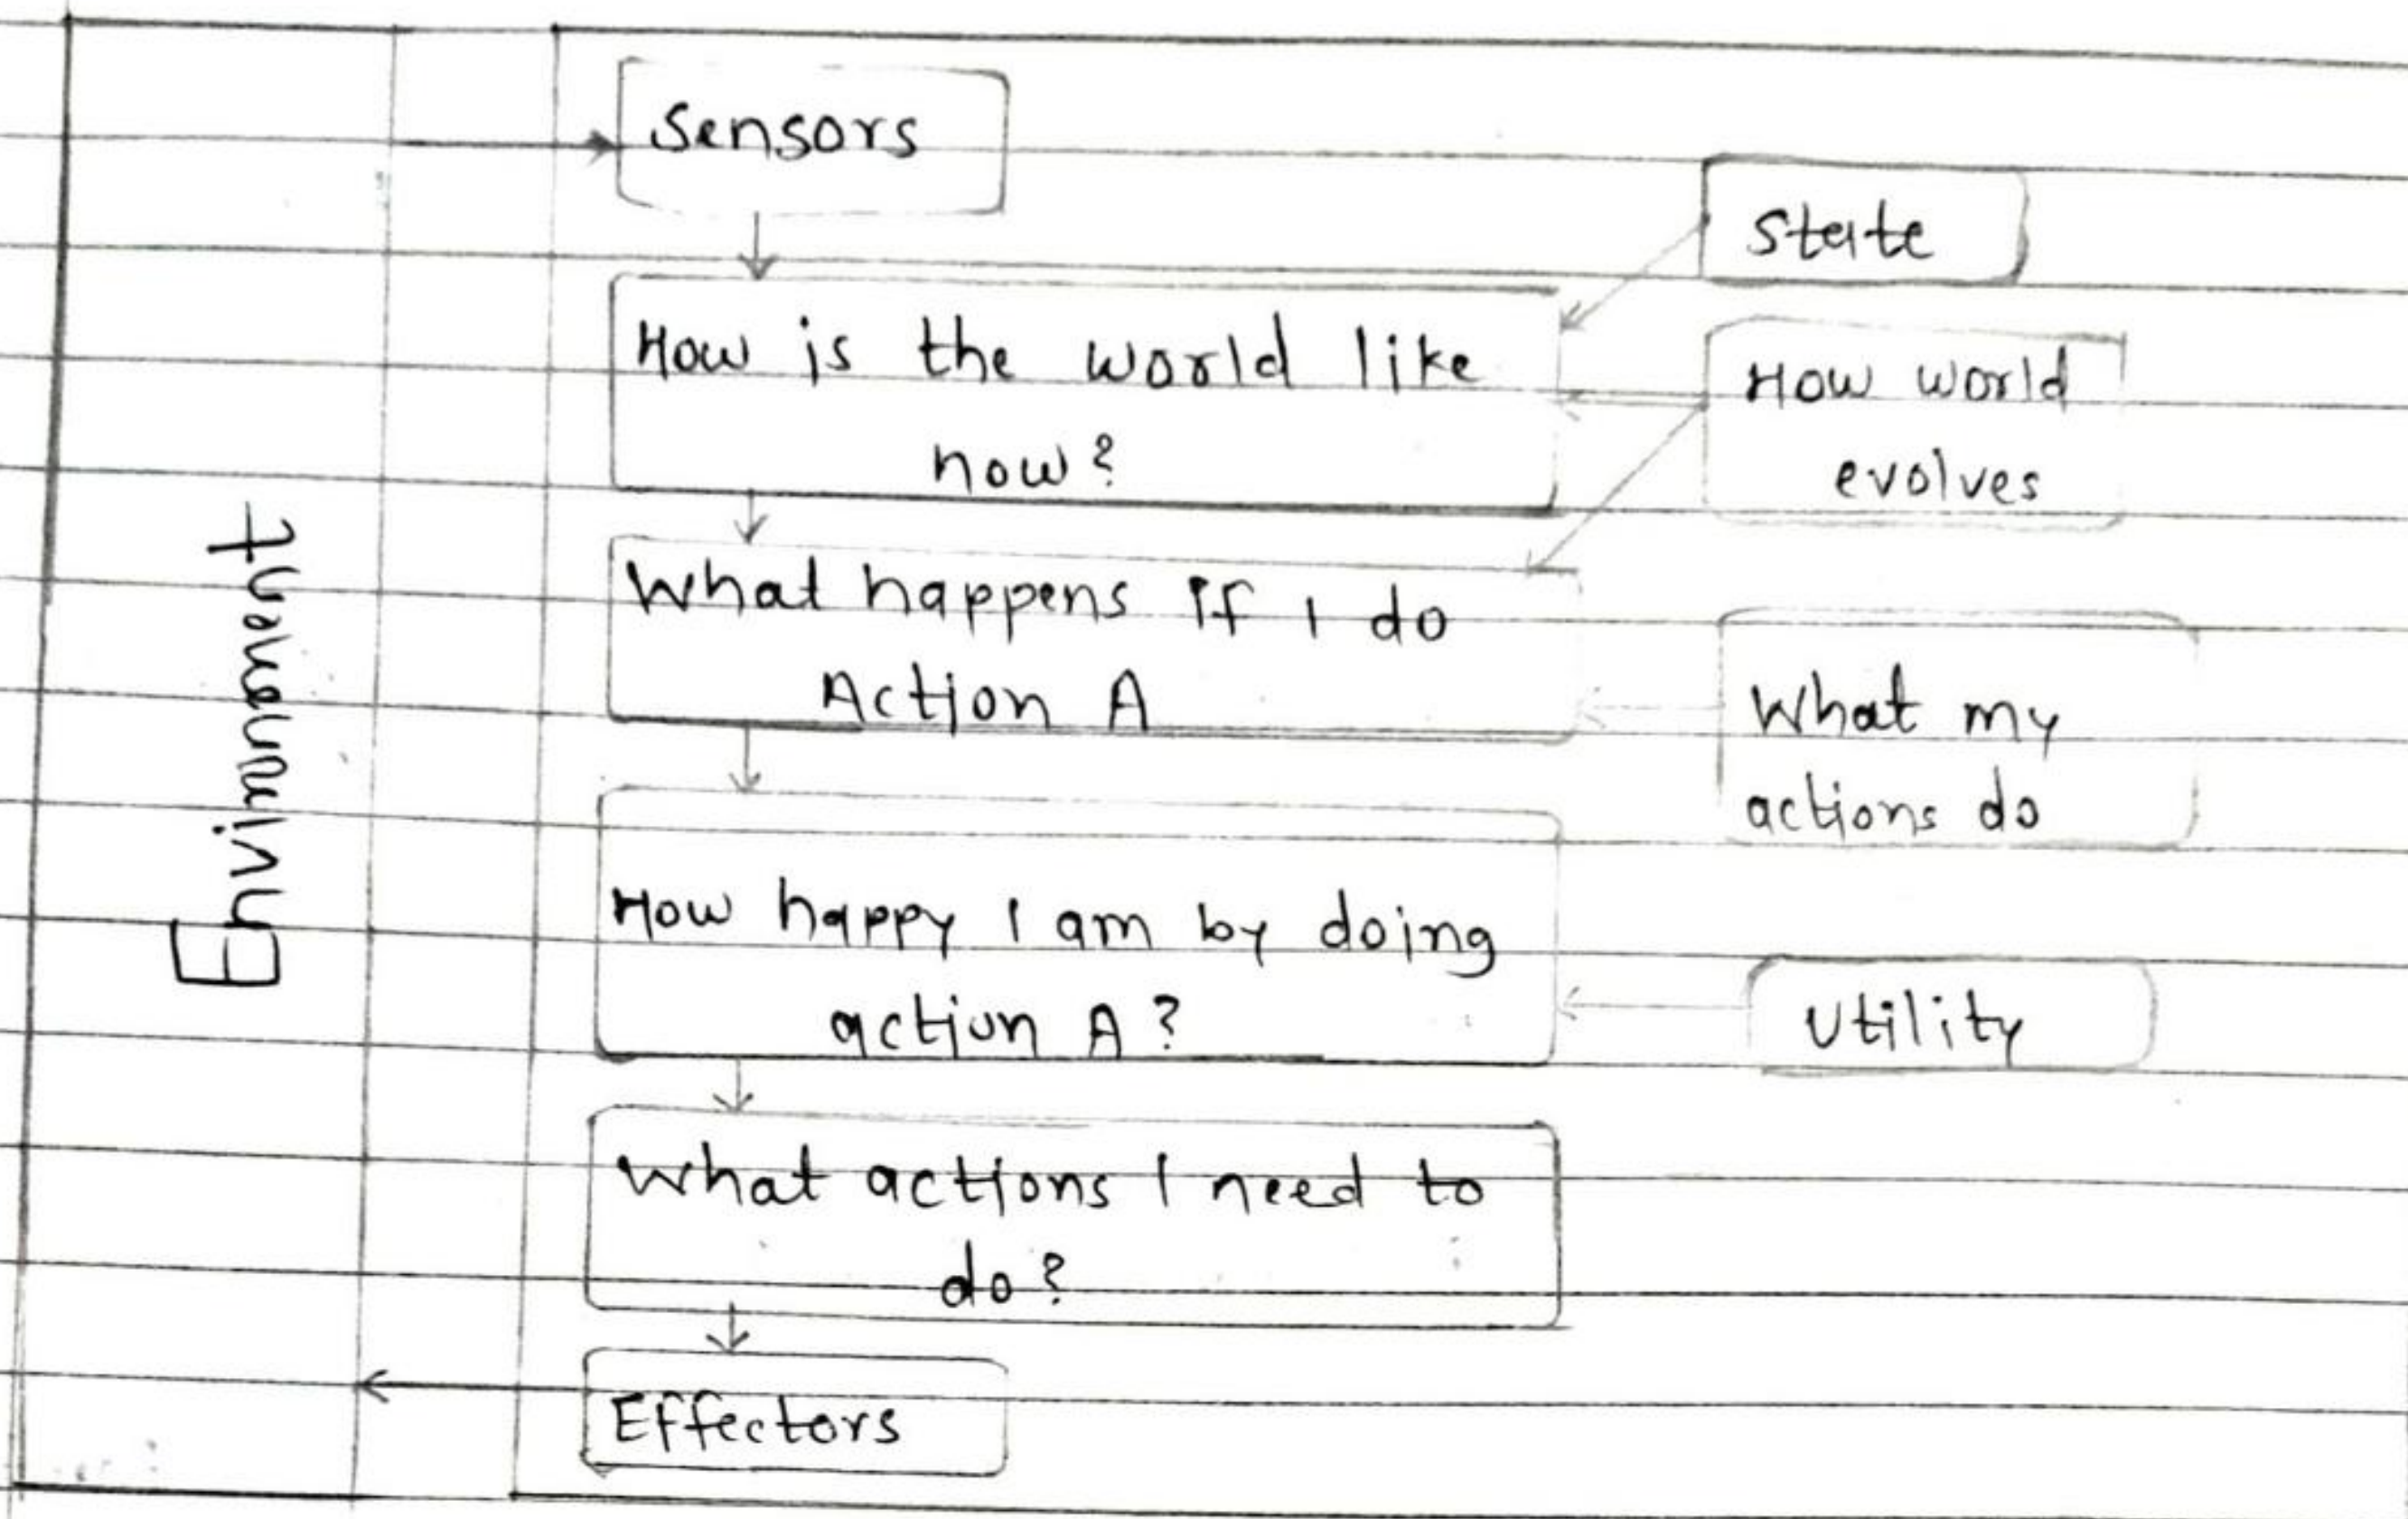 Environment
Sensors
How is the world like
now?
What happens if I do
Action A
How happy I am by doing
action A?
What actions I need to
do?
Effectors
State
How world
evolves
What my
actions do
Utility